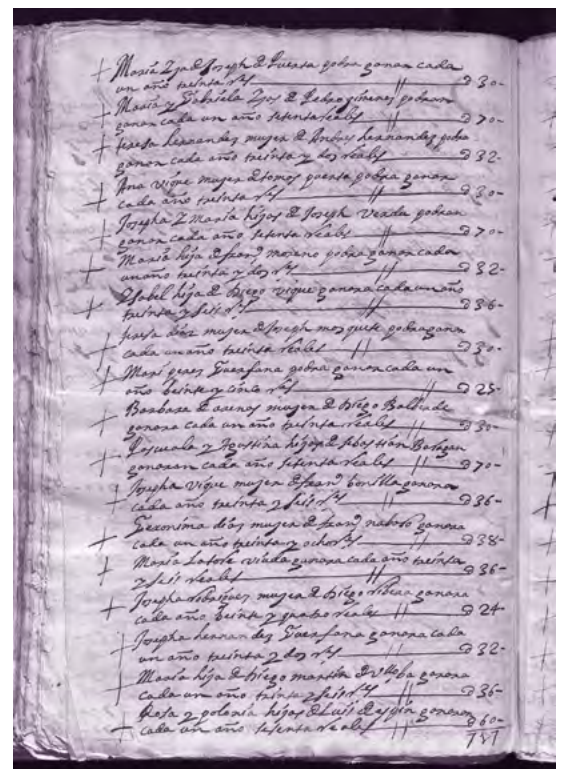 Maria Zja de Joseph de Puerta pobra ganan cada
un año treinta rs // ∂ 30-
Maria y Gabriela Zjas de Pedro gimenes pobran
ganan cada un año setenta reales // ∂ 70-
teresa hernandez muger de Andres hernandez pobra
ganan cada año treinta y dos reales ∂ 32-
Ana vique muger de tomas puerta pobra ganan
cada año treinta rs // ∂ 30-
Josepha Z maria hijas de Joseph Verdu pobran
ganan cada año setenta reales // ∂ 70-
Maria hija de fran.co moreno pobra ganan cada
un año treinta y dos rs // ∂ 32-
Isabel hija de Diego vique ganara cada un año
treinta y seis rs // ∂ 36-
muger de Joseph mosquete pobra ganan
cada un año treinta reales // ∂ 30-
Mari perez Guerfana pobra ganan cada un
año beinte y cinco rs // ∂ 25-
Barbara de arenas muger de Diego Balverde
ganara cada un año treinta reales // ∂ 30-
Pascuala y Agustina hijas de sebastian
ganaran cada año setenta reales // ∂ 70-
Josepha vique muger de fran.co bonilla ganara
cada año treinta y seis rs // ∂ 36-
Geronima dias muger de fran.co ganara
cada un año treinta y ocho rs // ∂ 38-
Maria Latore viuda ganara cada año treinta
y seis reales // ∂ 36-
Josepha muger de Diego ganara
cada año beinte y quatro reales // ∂ 24-
Josepha hernandez Guerfana ganara cada
un año treinta y dos rs // ∂ 32-
Maria hija de Diego martin de ganara
cada un año treinta y seis rs // ∂ 36-
Rosa y polonia hijas de Luis ganaran
cada un año sesenta reales // ∂ 60-